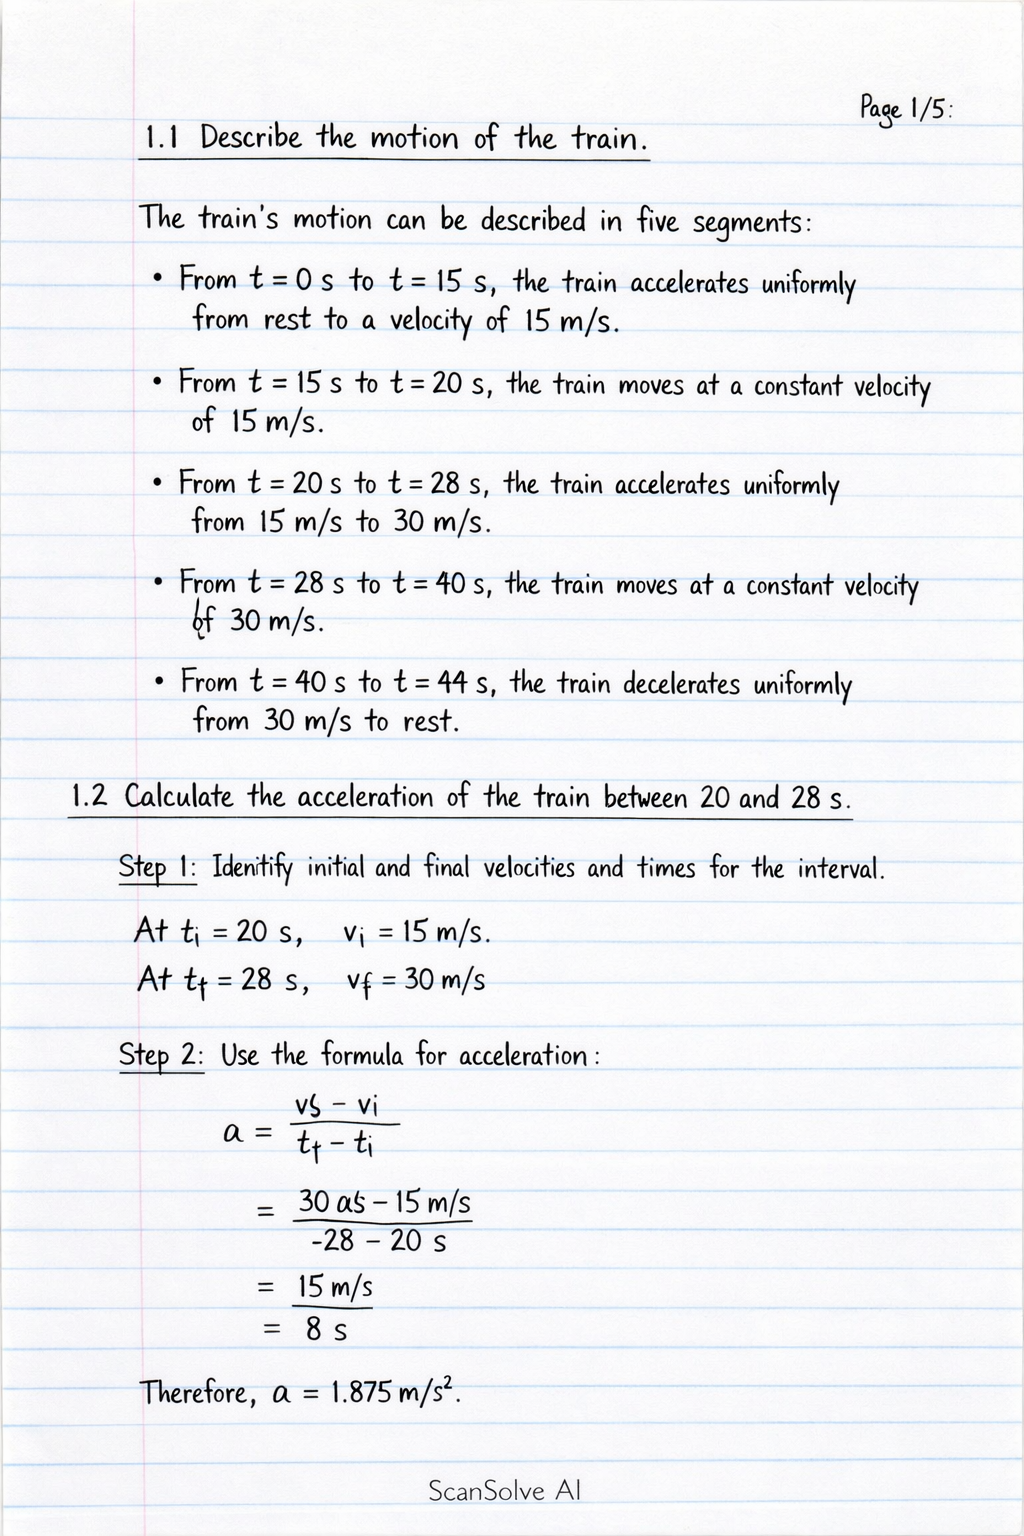 Page 1/5:
1.1 Describe the motion of the train.
The train's motion can be described in five segments:
• From t = 0 s to t = 15 s, the train accelerates uniformly
from rest to a velocity of 15 m/s.
• From t = 15 s to t = 20 s, the train moves at a constant velocity
of 15 m/s.
• From t = 20 s to t = 28 s, the train accelerates uniformly
from 15 m/s to 30 m/s.
• From t = 28 s to t = 40 s, the train moves at a constant velocity
of 30 m/s.
• From t = 40 s to t = 44 s, the train decelerates uniformly
from 30 m/s to rest.
1.2 Calculate the acceleration of the train between 20 and 28 s.
Step 1: Identify initial and final velocities and times for the interval.
At ti = 20 s, vi = 15 m/s.
At tf = 28 s, vf = 30 m/s
Step 2: Use the formula for acceleration:
vf - vi
a =
tf - ti
= 30 - 15 m/s
-28 - 20 s
= 15 m/s
= 8 s
Therefore, a = 1.875 m/s².
ScanSolve AI